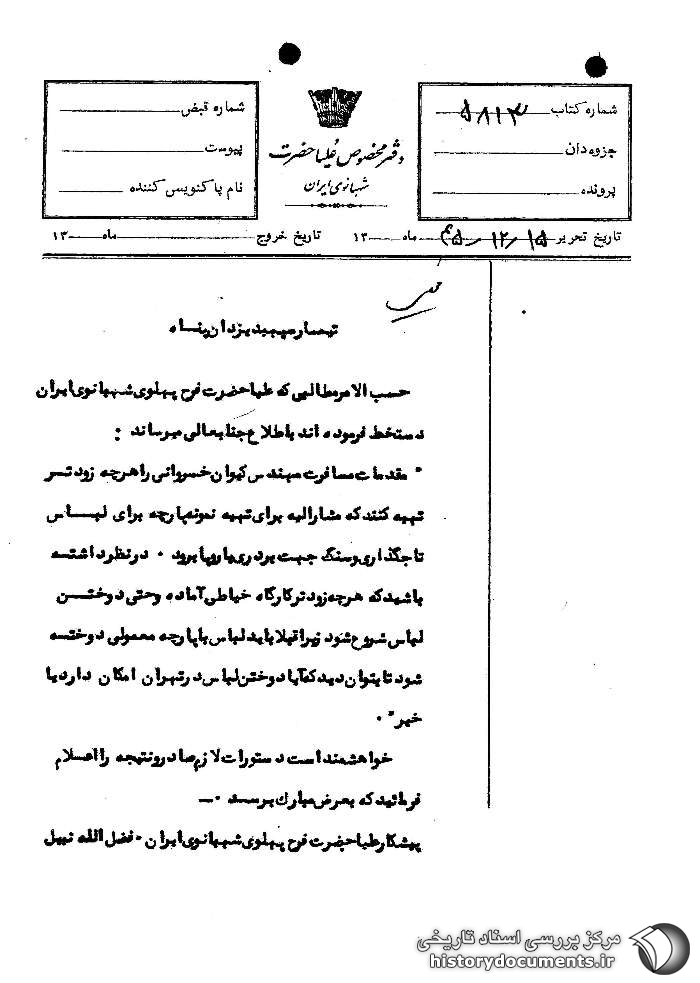 شماره کتاب ۵۸۱۳
جزوه‌دان
پرونده
دفتر مخصوص علیاحضرت
شهبانوی ایران
شماره قبض
پیوست
نام پاکنویس کننده
تاریخ تحریر ۱۵ ر ۱۲ ر ۴۵ ماه ۱۳
تاریخ خروج ماه ۱۳
تیمسار سپهبد یزدان پناه
حسب الامر مطالبی که علیاحضرت فرح پهلوی شهبانوی ایران
دستخط فرموده اند باطلاع جنابعالی میرساند :
" مقدمات مسافرت مهندس کیوان خسروانی را هرچه زودتر
تهیه کنند که مشارالیه برای تهیه نمونه پارچه برای لباس
تاجگذاری و سنگ جهت بردری باروپا برود ۰ در نظر داشته
باشید که هرچه زودتر کارگاه خیاطی آماده و حتی دوختن
لباس شروع شود زیرا قبلا باید لباس با پارچه معمولی دوخته
شود تا بتوان دید که آیا دوختن لباس در تهران امکان دارد یا
خیر " ۰
خواهشمند است دستورات لازم صادر و نتیجه را اعلام
فرمائید که بعرض مبارک برسد ۰ـ
پیشکار علیاحضرت فرح پهلوی شهبانوی ایران ۰ فضل الله نبیل
مرکز بررسی اسناد تاریخی
historydocuments.ir